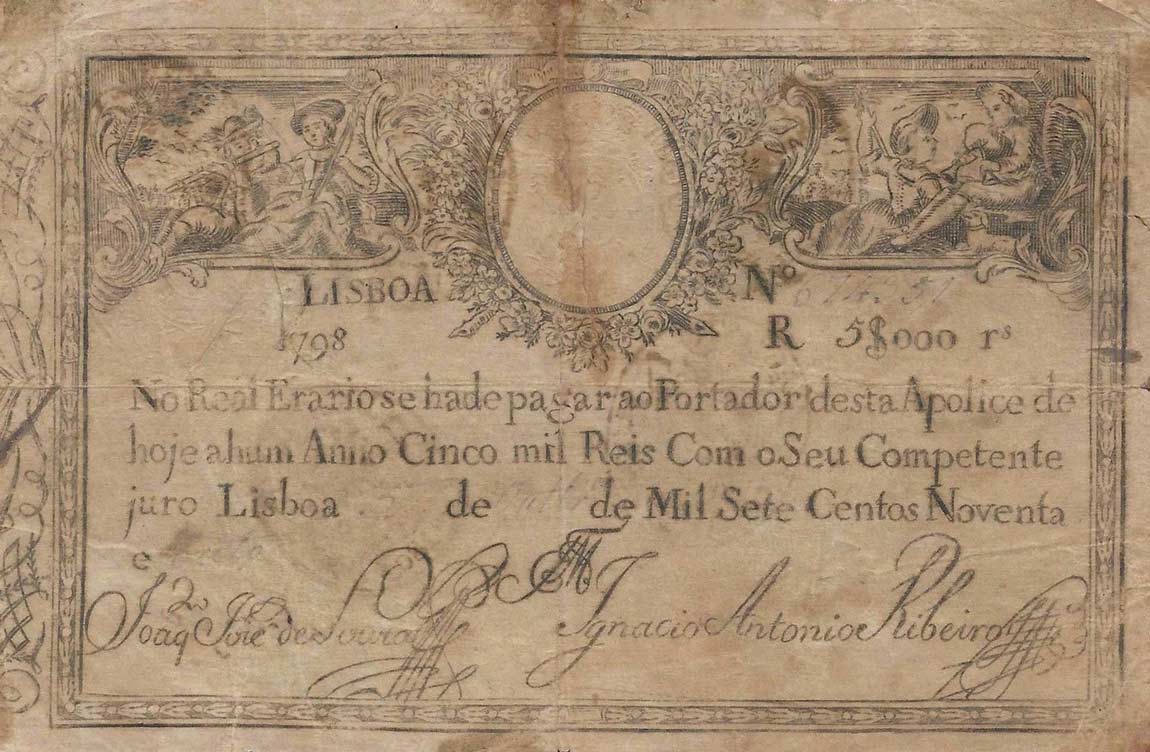 LISBOA
Nº
1798
R 5$000 rˢ
No Real Erario se hade pagar ao Portador desta Apolice de
hoje a hum Anno Cinco mil Reis Com o Seu Competente
juro Lisboa de de Mil Sete Centos Noventa
e
Joaqᵐ Jozé de Souza
Ignacio Antonio Ribeiro